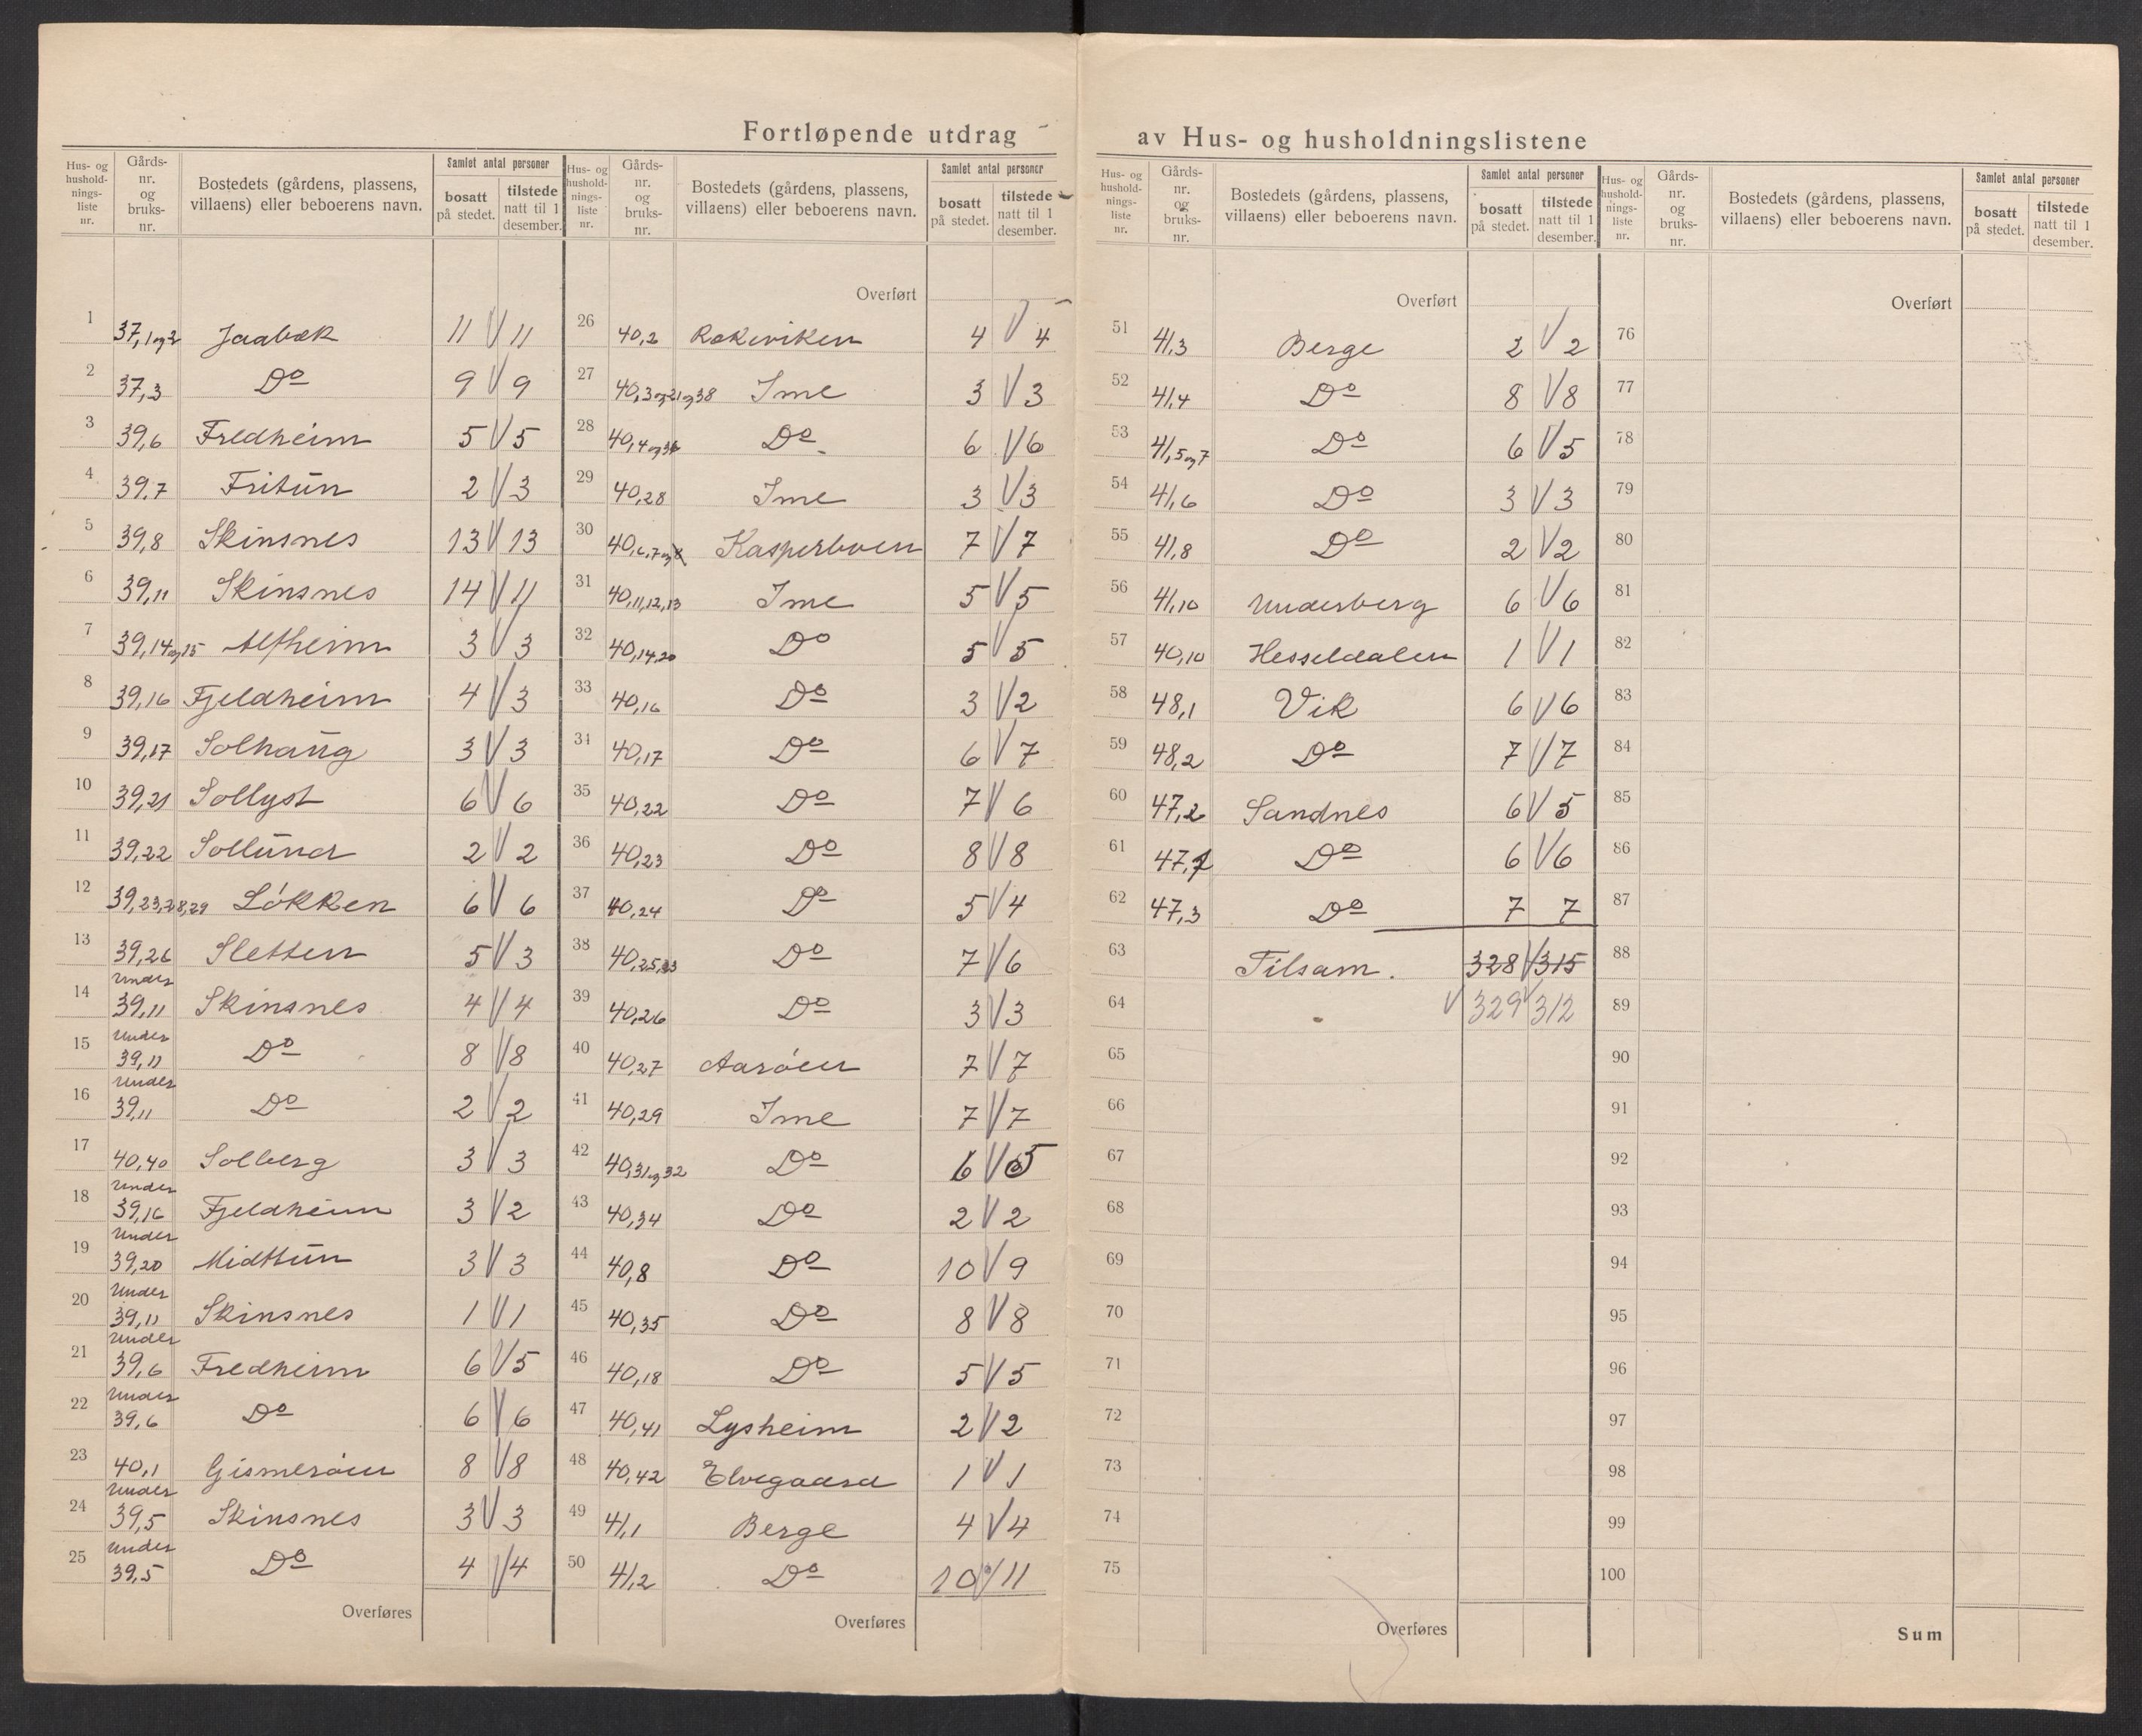 Fortløpende utdrag av Hus- og husholdningslistene
Hus- og husholdningsliste nr. Gårds-nr. og bruks-nr. Bostedets (gårdens, plassens, villaens) eller beboerens navn. Samlet antal personer bosatt på stedet. tilstede natt til 1 desember.
1 37,1og2 Jaabæk 11 11
2 37,3 Do 9 9
3 39,6 Fredheim 5 5
4 39,7 Fritun 2 3
5 39,8 Skinsnes 13 13
6 39,11 Skinsnes 14 11
7 39,14og15 Alfheim 3 3
8 39,16 Fjeldheim 4 3
9 39,17 Solhaug 3 3
10 39,21 Sollyst 6 6
11 39,22 Sollund 2 2
12 39,23,28,29 Løkken 6 6
13 39,26 Sletten 5 3
14 Under 39,11 Skinsnes 4 4
15 Under 39,11 Do 8 8
16 Under 39,11 Do 2 2
17 40,40 Solberg 3 3
18 Under 39,16 Fjeldheim 3 2
19 Under 39,20 Midttun 3 3
20 Under 39,11 Skinsnes 1 1
21 Under 39,6 Fredheim 6 5
22 Under 39,6 Do 6 6
23 40,1 Gismerøen 8 8
24 Under 39,5 Skinsnes 3 3
25 Under 39,5 Do 4 4
Overføres
Hus- og husholdningsliste nr. Gårds-nr. og bruks-nr. Bostedets (gårdens, plassens, villaens) eller beboerens navn. Samlet antal personer bosatt på stedet. tilstede natt til 1 desember.
Overført
26 40,2 Rækeviken 4 4
27 40,3og21og38 Ime 3 3
28 40,4og36 Do 6 6
29 40,28 Ime 3 3
30 40,6,7og Kasperboen 7 7
31 40,11,12,13 Ime 5 5
32 40,14,20 Do 5 5
33 40,16 Do 3 2
34 40,17 Do 6 7
35 40,22 Do 7 6
36 40,23 Do 8 8
37 40,24 Do 5 4
38 40,25,33 Do 7 6
39 40,26 Do 3 3
40 40,27 Aarøen 7 7
41 40,29 Ime 7 7
42 40,31og32 Do 6 5
43 40,34 Do 2 2
44 40,8 Do 10 9
45 40,35 Do 8 8
46 40,18 Do 5 5
47 40,41 Lysheim 2 2
48 40,42 Elvegaard 1 1
49 41,1 Berge 4 4
50 41,2 Do 10 11
Overføres
Hus- og husholdningsliste nr. Gårds-nr. og bruks-nr. Bostedets (gårdens, plassens, villaens) eller beboerens navn. Samlet antal personer bosatt på stedet. tilstede natt til 1 desember.
Overført
51 41,3 Berge 2 2
52 41,4 Do 8 8
53 41,5og7 Do 6 5
54 41,6 Do 3 3
55 41,8 Do 2 2
56 41,10 Underberg 6 6
57 40,10 Hesseldalen 1 1
58 48,1 Vik 6 6
59 48,2 Do 7 7
60 47,2 Sandnes 6 5
61 47,1 Do 6 6
62 47,3 Do 7 7
63 Tilsam. 328 315
64 329 312
65
66
67
68
69
70
71
72
73
74
75
Overføres
Hus- og husholdningsliste nr. Gårds-nr. og bruks-nr. Bostedets (gårdens, plassens, villaens) eller beboerens navn. Samlet antal personer bosatt på stedet. tilstede natt til 1 desember.
Overført
76
77
78
79
80
81
82
83
84
85
86
87
88
89
90
91
92
93
94
95
96
97
98
99
100
Sum